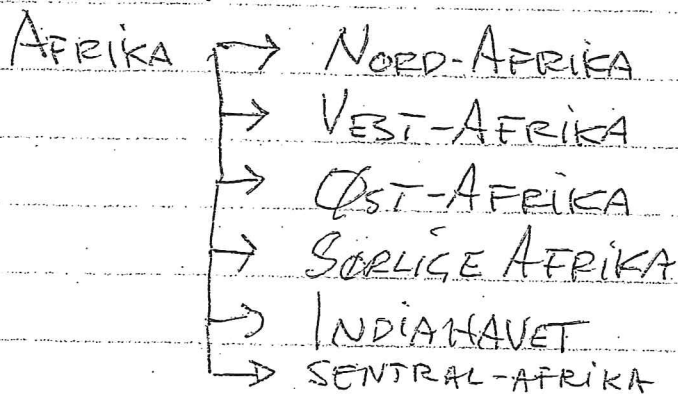 AFRIKA → NORD-AFRIKA
→ VEST-AFRIKA
→ ØST-AFRIKA
→ SØRLIGE AFRIKA
→ INDIAHAVET
→ SENTRAL-AFRIKA